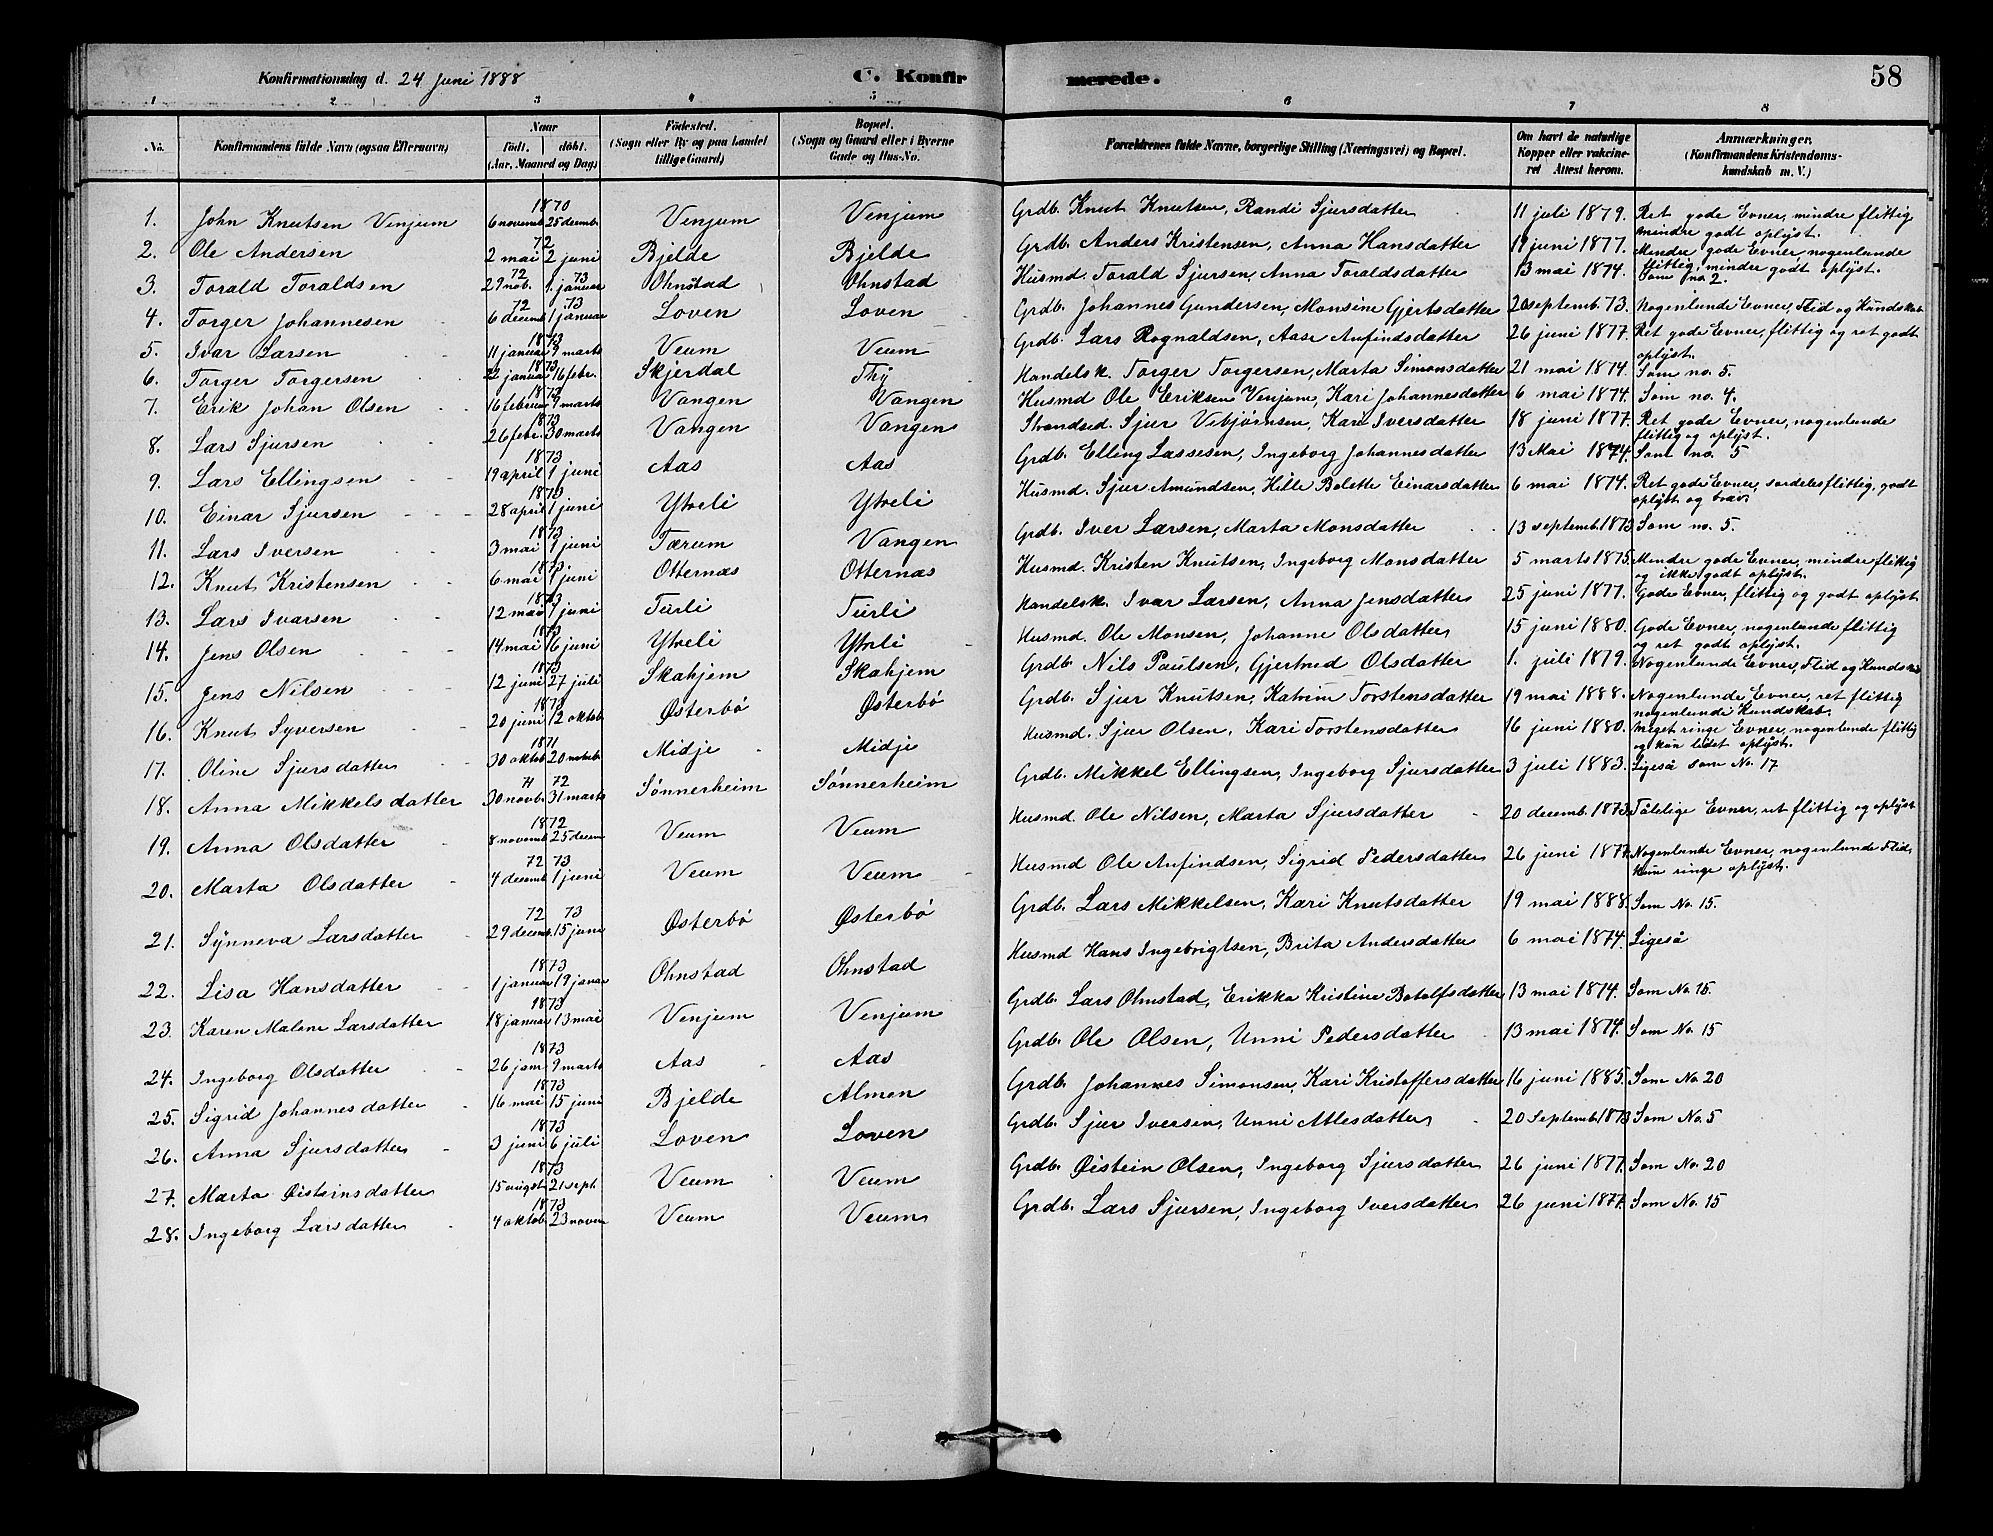 Konfirmationsdag d. 24 Juni 1888 C. Konfirmerede. 58
1 2 3 4 5 6 7 8
No. Konfirmandens fulde Navn (ogsaa Efternavn) Naar födt. döbt. (Aar, Maaned og Dag) Födested. (Sogn eller By og paa Landet tillige Gaard) Bopæl. (Sogn og Gaard eller i Byerne Gade og Hus-No. Forældrenes fulde Navne, borgerlige Stilling (Næringsvei) og Bopæl. Om havt de naturlige Kopper eller vakcineret Attest herom. Anmærkninger. (Konfirmandens Kristendomskundskab m. V.)
1. John Knutsen Venjum 1870 6 novemb 25 decemb. Venjum Venjum Grdb. Knut Knutsen, Randi Sjursdatter 11 juli 1879. Ret gode Evner, mindre flittig mindre godt oplyst.
2. Ole Andersen 72 2 mai 2 juni Bjelde Bjelde Grdb. Anders Kristensen, Anna Hansdatter juni 1877. Mindre gode Evner, nogenlunde flittig, mindre godt oplyst.
3. Torald Toraldsen 72 29 nob. 73 1. januar Ohnstad Ohnstad Husmd. Torald Sjursen, Anna Toraldsdatter 13 mai 1874. Som no 2.
4. Torger Johannesen 72 6 decemb 73 1 januar Loven Loven Grdb. Johannes Gundersen, Monsine Gjertsdatter 20 septemb. 73. Nogenlunde Evner, Flid og Kundskab
5. Ivar Larsen 1873 11 januar 9 marts Veum Veum Grdb. Lars Rognaldsen, Aase Anfindsdatter 26 juni 1877. Ret gode Evner, flittig og ret godt oplyst.
6. Torger Torgersen 1873 22 januar 16 febr. Skjerdal Thy Handelsk. Torger Torgersen, Marta Simonsdatter 21 mai 1874. Som no. 5.
7. Erik Johan Olsen 1873 16 februar 9 marts Vangen Vangen Husmd Ole Eriksen Venjum, Kari Johannesdatter 6 mai 1874. Som no. 4.
8. Lars Sjursen 1873 26 febr. 30 marts Vangen Vangen Strandsid. Sjur Vibjørnsen, Kari Iversdatter 18 juni 1877. Ret gode Evner, nogenlunde flittig og oplyst.
9. Lars Ellingsen 1873 19 april 1 juni Aas Aas Grdb. Elling Lassesen, Ingeborg Johannesdatter 13 Mai 1874. Som no. 5
10. Einar Sjursen 1873 28 april 1 juni Ytreli Ytreli Husmd. Sjur Amundsen, Hille Bolette Einarsdatter 6 mai 1874. Ret gode Evner, serdeles flittig, godt oplyst og brav.
11. Lars Iversen 1873 3 mai 1 juni Tærum Vangen Grdb. Iver Larsen, Marta Monsdatter 13 septemb. 1873 Som no. 5.
12. Knut Kristensen 1873 6 mai 1 juni Otternæs Otternæs Husmd. Kristen Knutsen, Ingeborg Monsdatter 5 marts 1875. Mindre gode Evner, mindre flittig og ikke godt oplyst.
13. Lars Ivarsen 1873 12 mai 1 juni Turli Turli Handelsk. Ivar Larsen, Anna Jensdatter 25 juni 1877. Gode Evner, flittig og godt oplyst
14. Jens Olsen 1873 14 mai 16 juni Ytreli Ytreli Husmd. Ole Monsen, Johanne Olsdatter 15 juni 1880. Gode Evner, nogenlunde flittig og ret godt oplyst.
15. Jens Nilsen 1873 12 juni 27 juli Skahjem Skahjem Grdb. Nils Poulsen, Gjertrud Olsdatter 1. juli 1879. Nogenlunde Evner, Flid og Kundskab
16. Knut Syversen 1873 20 juni 12 oktob. Østerbö Østerbö Grdb. Sjur Knutsen, Katrine Torstensdatter 19 mai 1888. Nogenlunde Evner, ret flittig nogenlunde Kundskab.
17. Oline Sjursdatter 1871 30 oktob 20 Midje Midje Husmd. Sjur Olsen, Kari Torstensdatter 16 juni 1880. Meget ringe Evner, nogenlunde flittig og kun lidet oplyst.
18. Anna Mikkelsdatter 71 30 novb. 72 31 marts Sønnerheim Sønnerheim Grdb. Mikkel Ellingsen, Ingeborg Sjursdatter 3 juli 1883. Ligeså som No. 17
19. Anna Olsdatter 1872 8 novemb 25 decem Veum Veum Husmd. Ole Nilsen, Marta Sjursdatter 20 decemb. 1873. Tålelige Evner, ret flittig og oplyst
20. Marta Olsdatter 72 4 decemb 73 1 juni Veum Veum Husmd Ole Anfindsen, Sigrid Pedersdatter 26 juni 1877. Nogenlunde Evner, nogenlunde Flid, kun ringe oplyst.
21. Synneva Larsdatter 72 29 decemb. 73 15 juni Østerbö Østerbö Grdb. Lars Mikkelsen, Kari Knutsdatter 19 mai 1888. Som No. 15.
22. Lisa Hansdatter 1873 1 januar 19 januar Ohnstad Ohnstad Husmd Hans Ingebrigtsen, Brita Andersdatter 6 mai 1874. Ligeså
23. Karen Malene Larsdatter 1873 18 januar 13 mai Venjum Venjum Grdb. Lars Ohnstad, Erikka Kristine Botolfsdatter 13 mai 1874. Som No. 15.
24. Ingeborg Olsdatter 1873 26 jan 9 marts Aas Aas Grdb. Ole Olsen, Unni Pedersdatter 13 mai 1874. Som No. 15
25. Sigrid Johannesdatter 1873 16 mai 15 juni Bjelde Almen Grdb. Johannes Simonsen, Kari Kristoffersdatter 16 juni 1885. Som No 20
26. Anna Sjursdatter 1873 3 juni 6 juli Loven Loven Grdb. Sjur Iversen, Unni Atlesdatter 20 Septemb 1873 Som No. 5
27. Marta Øisteinsdatter 1873 15 augst 21 sept. Veum Veum Grdb. Øistein Olsen, Ingeborg Sjursdatter 26 juni 1877. Som No. 20
28. Ingeborg Larsdatter 1873 4 oktob 23 novem Veum Veum Grdb. Lars Sjursen, Ingeborg Iversdatter 26 juni 1877. Som No. 15